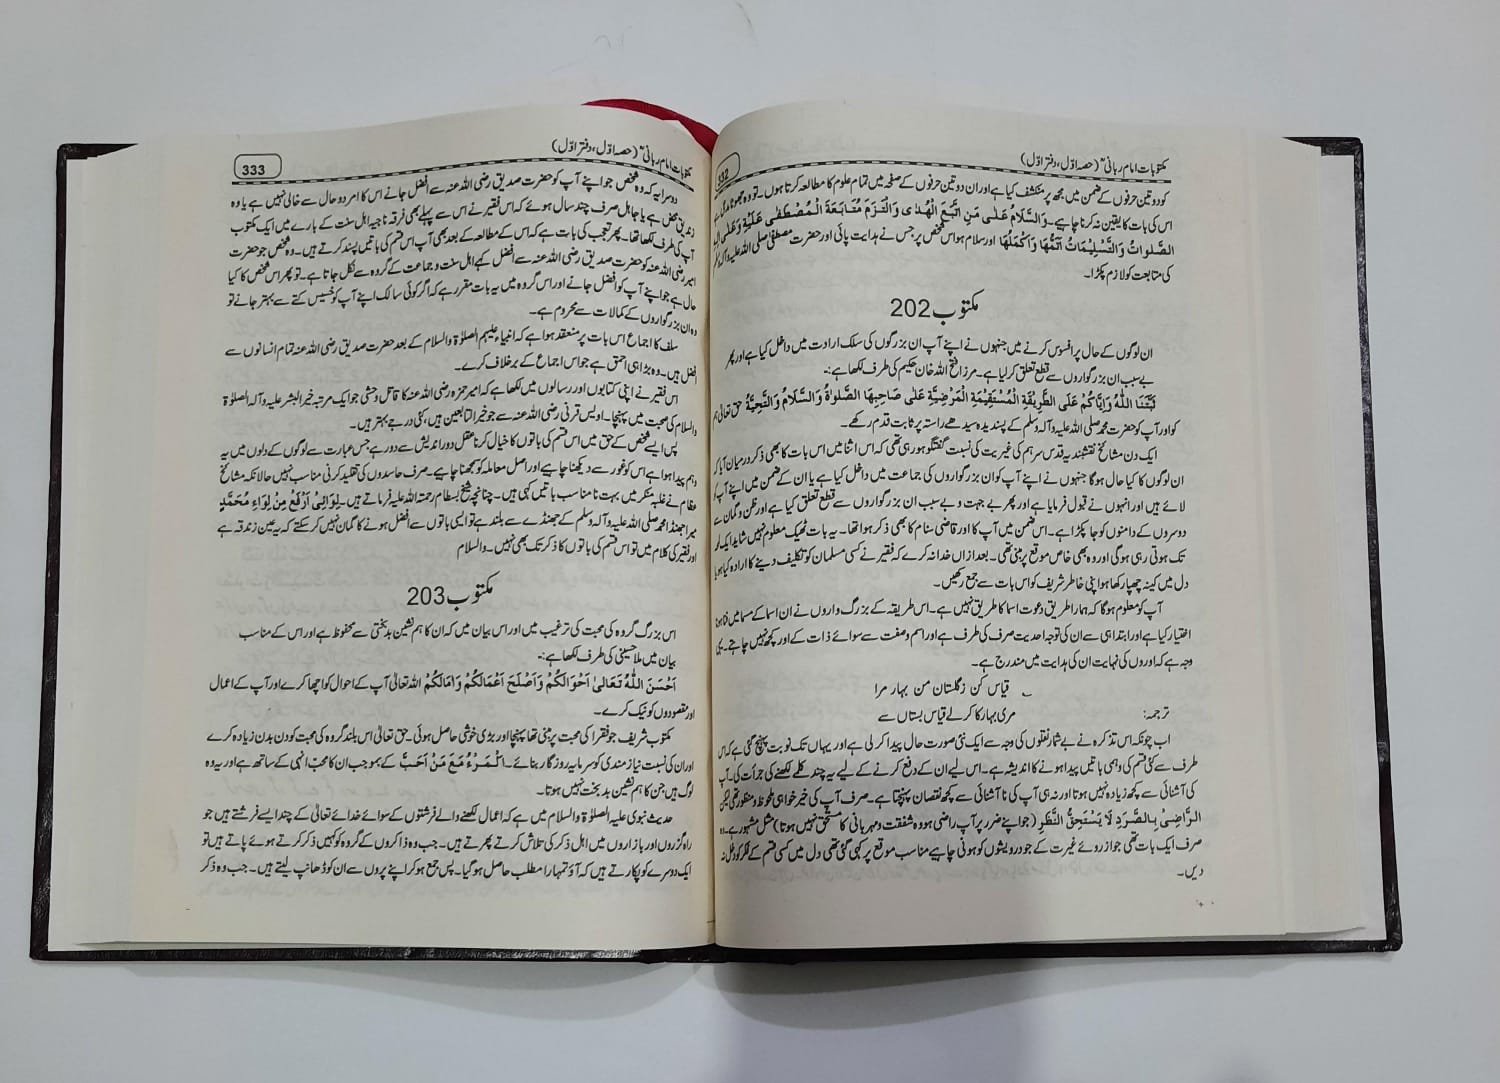 مکتوبات امام ربانیؒ (حصہ اوّل، دفتر اوّل)
332
کو دو تین حرفوں کے ضمن میں مجھ پر منکشف کیا ہے اور ان دو تین حرفوں کے صفحہ میں تمام علوم کا مطالعہ کرتا ہوں۔ تو وہ جھوٹا مدعی ہے
اس کی بات کا یقین نہ کرنا چاہیے۔ وَالسَّلَامُ عَلٰی مَنِ اتَّبَعَ الْهُدٰی وَالْتَزَمَ مُتَابَعَةَ الْمُصْطَفٰی عَلَیْهِ وَعَلٰی
الصَّلَوَاتُ وَالتَّسْلِیْمَاتُ اَتَمُّهَا وَاَکْمَلُهَا اور سلام ہو اس شخص پر جس نے ہدایت پائی اور حضرت مصطفیٰ صلی اللہ علیہ وآلہ
کی متابعت کو لازم پکڑا۔
مکتوب 202
ان لوگوں کے حال پر افسوس کرنے میں جنہوں نے اپنے آپ ان بزرگوں کی سلک ارادت میں داخل کیا ہے اور پھر
بے سبب ان بزرگواروں سے قطع تعلق کر لیا ہے۔ مرزا فتح اللہ خان حکیم کی طرف لکھا ہے:۔
ثَبَّتَنَا اللّٰهُ وَاِیَّاکُمْ عَلَی الطَّرِیْقَةِ الْمُسْتَقِیْمَةِ الْمَرْضِیَّةِ عَلٰی صَاحِبِهَا الصَّلٰوةُ وَالسَّلَامُ وَالتَّحِیَّةُ حق تعالیٰ ہم
کو اور آپ کو حضرت محمد صلی اللہ علیہ وآلہ وسلم کے پسندیدہ سیدھے راستہ پر ثابت قدم رکھے۔
ایک دن مشائخ نقشبندیہ قدس سرہم کی غیریت کی نسبت گفتگو ہو رہی تھی کہ اس اثنا میں اس بات کا بھی ذکر درمیان آیا کہ
ان لوگوں کا کیا حال ہوگا جنہوں نے اپنے آپ کو ان بزرگواروں کی جماعت میں داخل کیا ہے یا ان کے ضمن میں اپنے آپ کو
لائے ہیں اور انہوں نے قبول فرمایا ہے اور پھر بے جہت و بے سبب ان بزرگواروں سے قطع تعلق کیا ہے اور ظن و گمان سے
دوسروں کے دامنوں کو جا پکڑا ہے۔ اس ضمن میں آپ کا اور قاضی سنام کا بھی ذکر ہوا تھا۔ یہ بات ٹھیک معلوم نہیں شاید ایک
تک ہوتی رہی ہوگی اور وہ بھی خاص موقع پر مبنی تھی۔ بعد ازاں خدا نہ کرے کہ فقیر نے کسی مسلمان کو تکلیف دینے کا ارادہ کیا ہو یا
دل میں کینہ چھپا رکھا ہو اپنی خاطر شریف کو اس بات سے جمع رکھیں۔
آپ کو معلوم ہوگا کہ ہمارا طریق دعوت اسما کا طریق نہیں ہے۔ اس طریقہ کے بزرگ واروں نے ان اسما کے مسما میں فنا ہونا
اختیار کیا ہے اور ابتدا ہی سے ان کی توجہ احدیت صرف کی طرف ہے اور اسم و صفت سے سوائے ذات کے اور کچھ نہیں چاہتے۔ یہی
وجہ ہے کہ اوروں کی نہایت ان کی ہدایت میں مندرج ہے۔
؎ قیاس کن ز گلستان من بہار مرا
ترجمہ: مری بہار کا کر لے قیاس بستاں سے
اب چونکہ اس تذکرہ نے بے شمار نقلوں کی وجہ سے ایک نئی صورت حال پیدا کر لی ہے اور یہاں تک نوبت پہنچ گئی ہے کہ اس
طرف سے کئی قسم کی وہمی باتیں پیدا ہونے کا اندیشہ ہے۔ اس لیے ان کے دفع کرنے کے لیے یہ چند کلمے لکھنے کی جرأت کی۔ آپ
کی آشنائی سے کچھ زیادہ نہیں ہوتا اور نہ ہی آپ کی نا آشنائی سے کچھ نقصان پہنچتا ہے۔ صرف آپ کی خیر خواہی ملحوظ و منظور تھی لیکن
الرَّاضِیْ بِالضَّرَرِ لَا یَسْتَحِقُّ النَّظَرَ (جو اپنے ضرر پر آپ راضی ہو وہ شفقت و مہربانی کا مستحق نہیں ہوتا) مثل مشہور ہے۔ وہ
صرف ایک بات تھی جو از روئے غیرت کے جو درویشوں کو ہونی چاہیے مناسب موقع پر کہی گئی تھی دل میں کسی قسم کے فکر کو دخل نہ
دیں۔
مکتوبات امام ربانیؒ (حصہ اوّل، دفتر اوّل)
333
دوسرا یہ کہ وہ شخص جو اپنے آپ کو حضرت صدیق رضی اللہ عنہ سے افضل جانے اس کا امر دو حال سے خالی نہیں ہے یا وہ
زندیق محض ہے یا جاہل صرف چند سال ہوئے کہ اس فقیر نے اس سے پہلے بھی فرقہ ناجیہ اہل سنت کے بارے میں ایک مکتوب
آپ کی طرف لکھا تھا۔ پھر تعجب کی بات ہے کہ اس کے مطالعہ کے بعد بھی آپ اس قسم کی باتیں پسند کرتے ہیں۔ وہ شخص جو حضرت
امیر رضی اللہ عنہ کو حضرت صدیق رضی اللہ عنہ سے افضل کہے اہل سنت و جماعت کے گروہ سے نکل جاتا ہے۔ تو پھر اس شخص کا کیا
حال ہے جو اپنے آپ کو افضل جانے اور اس گروہ میں یہ بات مقرر ہے کہ اگر کوئی سالک اپنے آپ کو خسیس کتے سے بہتر جانے تو
وہ ان بزرگواروں کے کمالات سے محروم ہے۔
سلف کا اجماع اس بات پر منعقد ہوا ہے کہ انبیاء علیہم الصلوٰۃ والسلام کے بعد حضرت صدیق رضی اللہ عنہ تمام انسانوں سے
افضل ہیں۔ وہ بڑا ہی احمق ہے جو اس اجماع کے برخلاف کرے۔
اس فقیر نے اپنی کتابوں اور رسالوں میں لکھا ہے کہ امیر حمزہ رضی اللہ عنہ کا قاتل وحشی جو ایک مرتبہ خیر البشر علیہ وآلہ الصلوٰۃ
والسلام کی صحبت میں پہنچا۔ اویس قرنی رضی اللہ عنہ سے جو خیر التابعین ہیں، کئی درجے بہتر ہیں۔
پس ایسے شخص کے حق میں اس قسم کی باتوں کا خیال کرنا عقل دور اندیش سے دور ہے جس عبارت سے لوگوں کے دلوں میں یہ
وہم پیدا ہوا ہے اس کو غور سے دیکھنا چاہیے اور اصل معاملہ کو سمجھنا چاہیے۔ صرف حاسدوں کی تقلید کرنی مناسب نہیں حالانکہ مشائخ
عظام نے غلبہ سکر میں بہت نا مناسب باتیں کہی ہیں۔ چنانچہ شیخ بسطام رحمۃ اللہ علیہ فرماتے ہیں۔ لِوَائِیْ اَرْفَعُ مِنْ لِّوَاءِ مُحَمَّدٍ
میرا جھنڈا محمد صلی اللہ علیہ وآلہ وسلم کے جھنڈے سے بلند ہے تو ایسی باتوں سے افضل ہونے کا گمان نہیں کر سکتے کہ یہ عین زندقہ ہے
اور فقیر کی کلام میں تو اس قسم کی باتوں کا ذکر تک بھی نہیں۔ والسلام
مکتوب 203
اس بزرگ گروہ کی محبت کی ترغیب میں اور اس بیان میں کہ ان کا ہم نشین بدبختی سے محفوظ ہے اور اس کے مناسب
بیان میں ملا حسینی کی طرف لکھا ہے:۔
اَحْسَنَ اللّٰهُ تَعَالٰی اَحْوَالَکُمْ وَاَصْلَحَ اَعْمَالَکُمْ وَاٰمَالَکُمْ اللہ تعالیٰ آپ کے احوال کو اچھا کرے اور آپ کے اعمال
اور مقصودوں کو نیک کرے۔
مکتوب شریف جو فقرا کی محبت پر مبنی تھا پہنچا اور بڑی خوشی حاصل ہوئی۔ حق تعالیٰ اس بلند گروہ کی محبت کو دن بدن زیادہ کرے
اور ان کی نسبت نیاز مندی کو سرمایہ روزگار بنائے۔ اَلْمَرْءُ مَعَ مَنْ اَحَبَّ کے بموجب ان کا محب انہی کے ساتھ ہے اور یہ وہ
لوگ ہیں جن کا ہم نشین بدبخت نہیں ہوتا۔
حدیث نبوی علیہ الصلوٰۃ والسلام میں ہے کہ اعمال لکھنے والے فرشتوں کے سوائے خدائے تعالیٰ کے چند ایسے فرشتے ہیں جو
راہ گزروں اور بازاروں میں اہل ذکر کی تلاش کرتے پھرتے ہیں۔ جب وہ ذاکروں کے گروہ کو کہیں ذکر کرتے ہوئے پاتے ہیں تو
ایک دوسرے کو پکارتے ہیں کہ آؤ تمہارا مطلب حاصل ہو گیا۔ پس جمع ہو کر اپنے پروں سے ان کو ڈھانپ لیتے ہیں۔ جب وہ ذکر